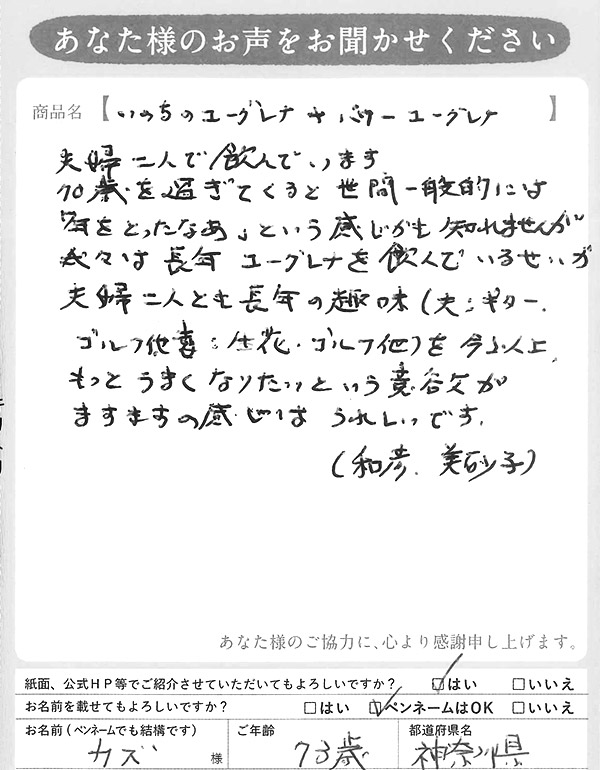 あなた様のお声をお聞かせください
商品名【いのちのユーグレナ サ バワーユーグレナ】
夫婦二人で飲んでいます
70歳を過ぎてくると世間一般的には
「年をとったなあ」という感じかも知れませんが
我々は長年ユーグレナを飲んでいるせいか
夫婦二人とも長年の趣味(夫:ギター.
ゴルフ他妻:生花.ゴルフ他)を今以上
もっとうまくなりたいという意欲が
ますますの感じはうれしいです.
(和彦.美砂子)
あなた様のご協力に、心より感謝申し上げます。
紙面、公式HP等でご紹介させていただいてもよろしいですか? ☑はい □いいえ
お名前を載せてもよろしいですか? □はい ☑ペンネームはOK □いいえ
お名前(ペンネームでも結構です) ご年齢 都道府県名
カズ 様 73歳 神奈川県